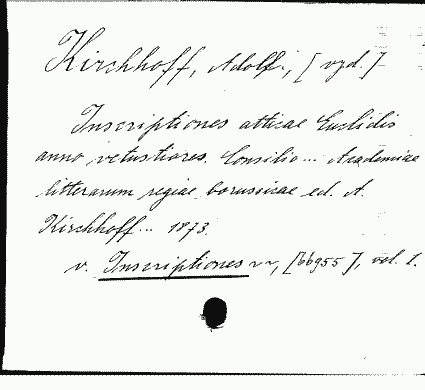 Kirchhoff, Adolf, [vyd.]
Inscriptiones atticae Euclidis
anno vetustiores. Consilio... Academiae
litterarum regiae borussicae ed. A.
Kirchhoff... 1873.
v. Inscriptiones ~~, [bbg55], vol. 1.